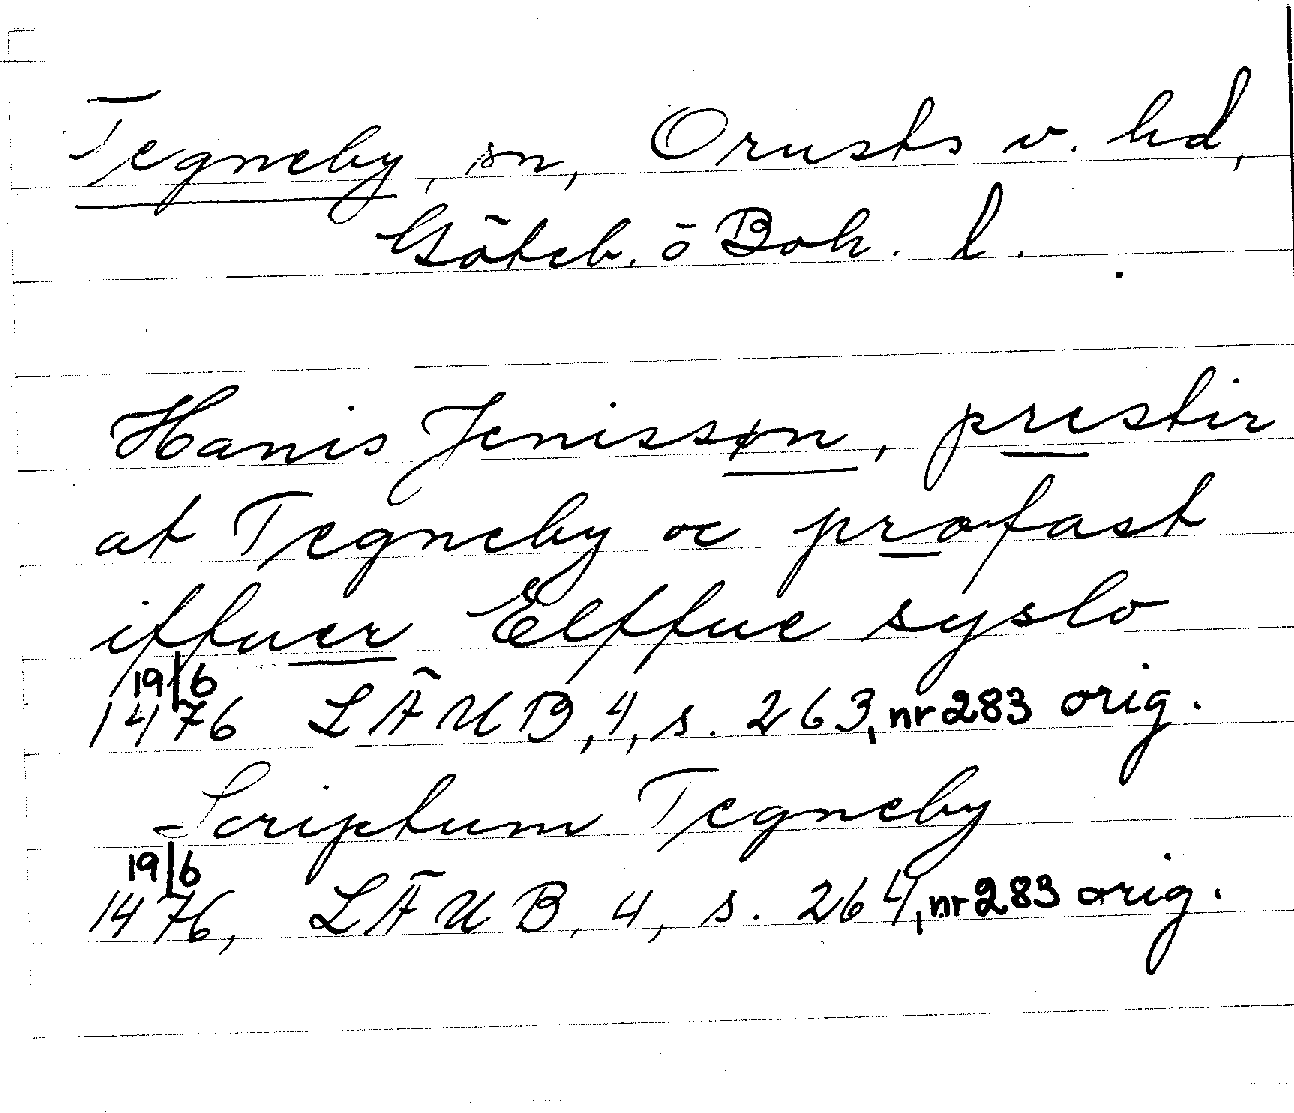 Tegneby, sn, Orusts v. hd,
Göteb. o Boh. l.
Hanis Jenissøn, prestir
at Tegneby oc profast
iffuer Elffue syslo
19/6
1476 LÄUB, 4, s. 263, nr 283 orig.
Scriptum Tegneby
19/6
1476, LÄUB, 4, s. 264, nr 283 orig.